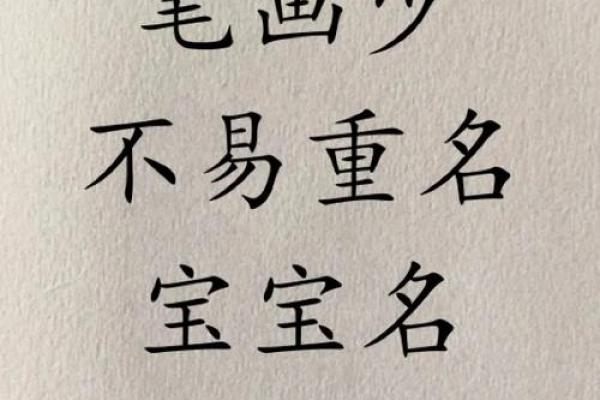 笔画少
不易重名
宝宝名